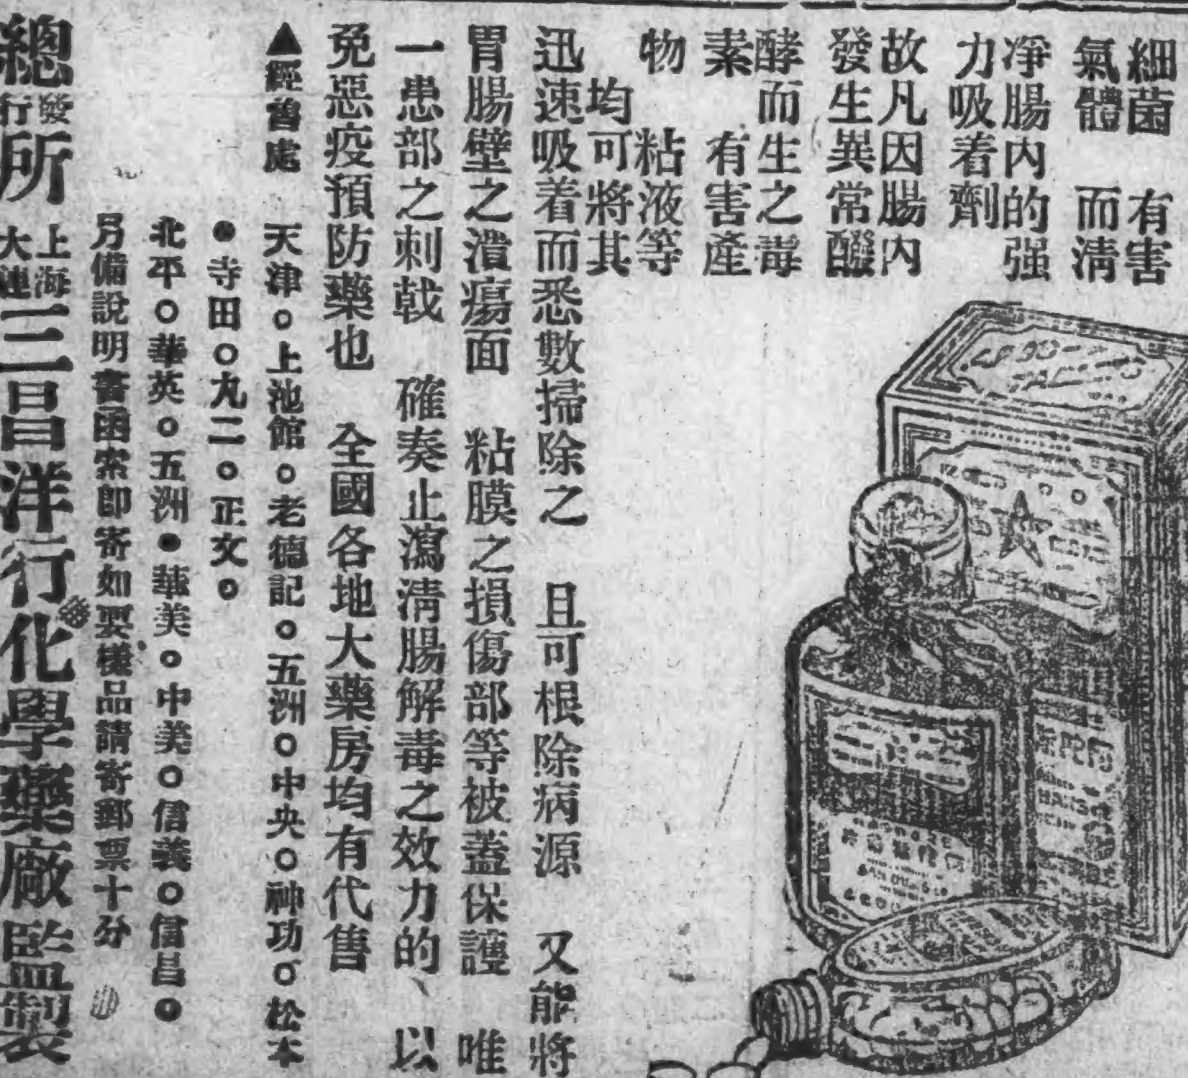 細菌　有害
氣體　而清
凈腸內的强
力吸着劑
故凡因腸內
發生異常醱
酵而生之毒
素　有害產
物　粘液等
均可將其
迅速吸着而悉數掃除之　且可根除病源　又能將
胃腸壁之潰瘍面　粘膜之損傷部等被蓋保護　唯
一患部之刺戟　確奏止瀉清腸解毒之效力的、以
免惡疫預防藥也　全國各地大藥房均有代售
▲經售處　天津○上池館○老德記○五洲○中央○神功○松本
●寺田○九二○正文○
北平○華英○五洲●華美○中美○信義○信昌○
另備說明書函索即寄如要樣品請寄郵票十分
總發行所　上海大連三昌洋行化學藥廠監製